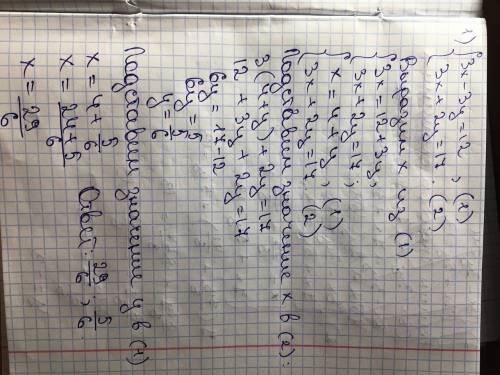 1) { 3x - 3y = 12, (1)
{ 3x + 2y = 17. (2)
Выразим x из (1):
{ 3x = 12 + 3y,
{ 3x + 2y = 17;
{ x = 4 + y, (1)
{ 3x + 2y = 17. (2)
Подставим значение x в (2):
3(4+y) + 2y = 17
12 + 3y + 2y = 17
6y = 17 - 12
6y = 5
y = 5/6
Подставим значение y в (1)
x = 4 + 5/6
x = 24+5/6
x = 29/6 Ответ: 29/6; 5/6.